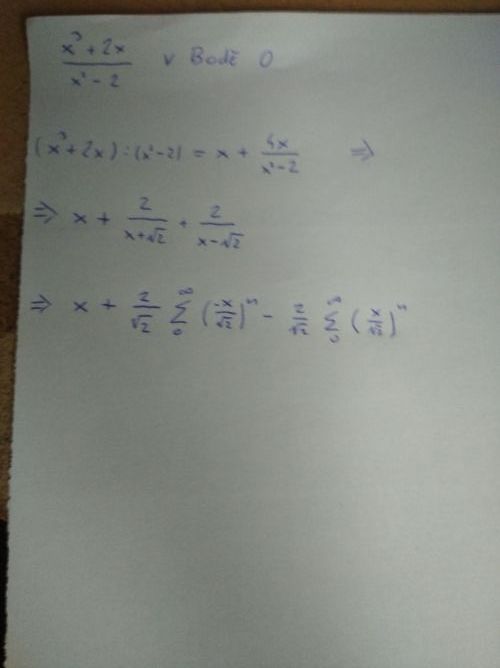 \frac{x^3+2x}{x^2-2} v Bodě 0
(x^3+2x):(x^2-2) = x + \frac{4x}{x^2-2} ⇒
⇒ x + \frac{2}{x+\sqrt{2}} + \frac{2}{x-\sqrt{2}}
⇒ x + \frac{2}{\sqrt{2}} \sum_{0}^{∞} (\frac{-x}{\sqrt{2}})^n - \frac{2}{\sqrt{2}} \sum_{0}^{∞} (\frac{x}{\sqrt{2}})^n